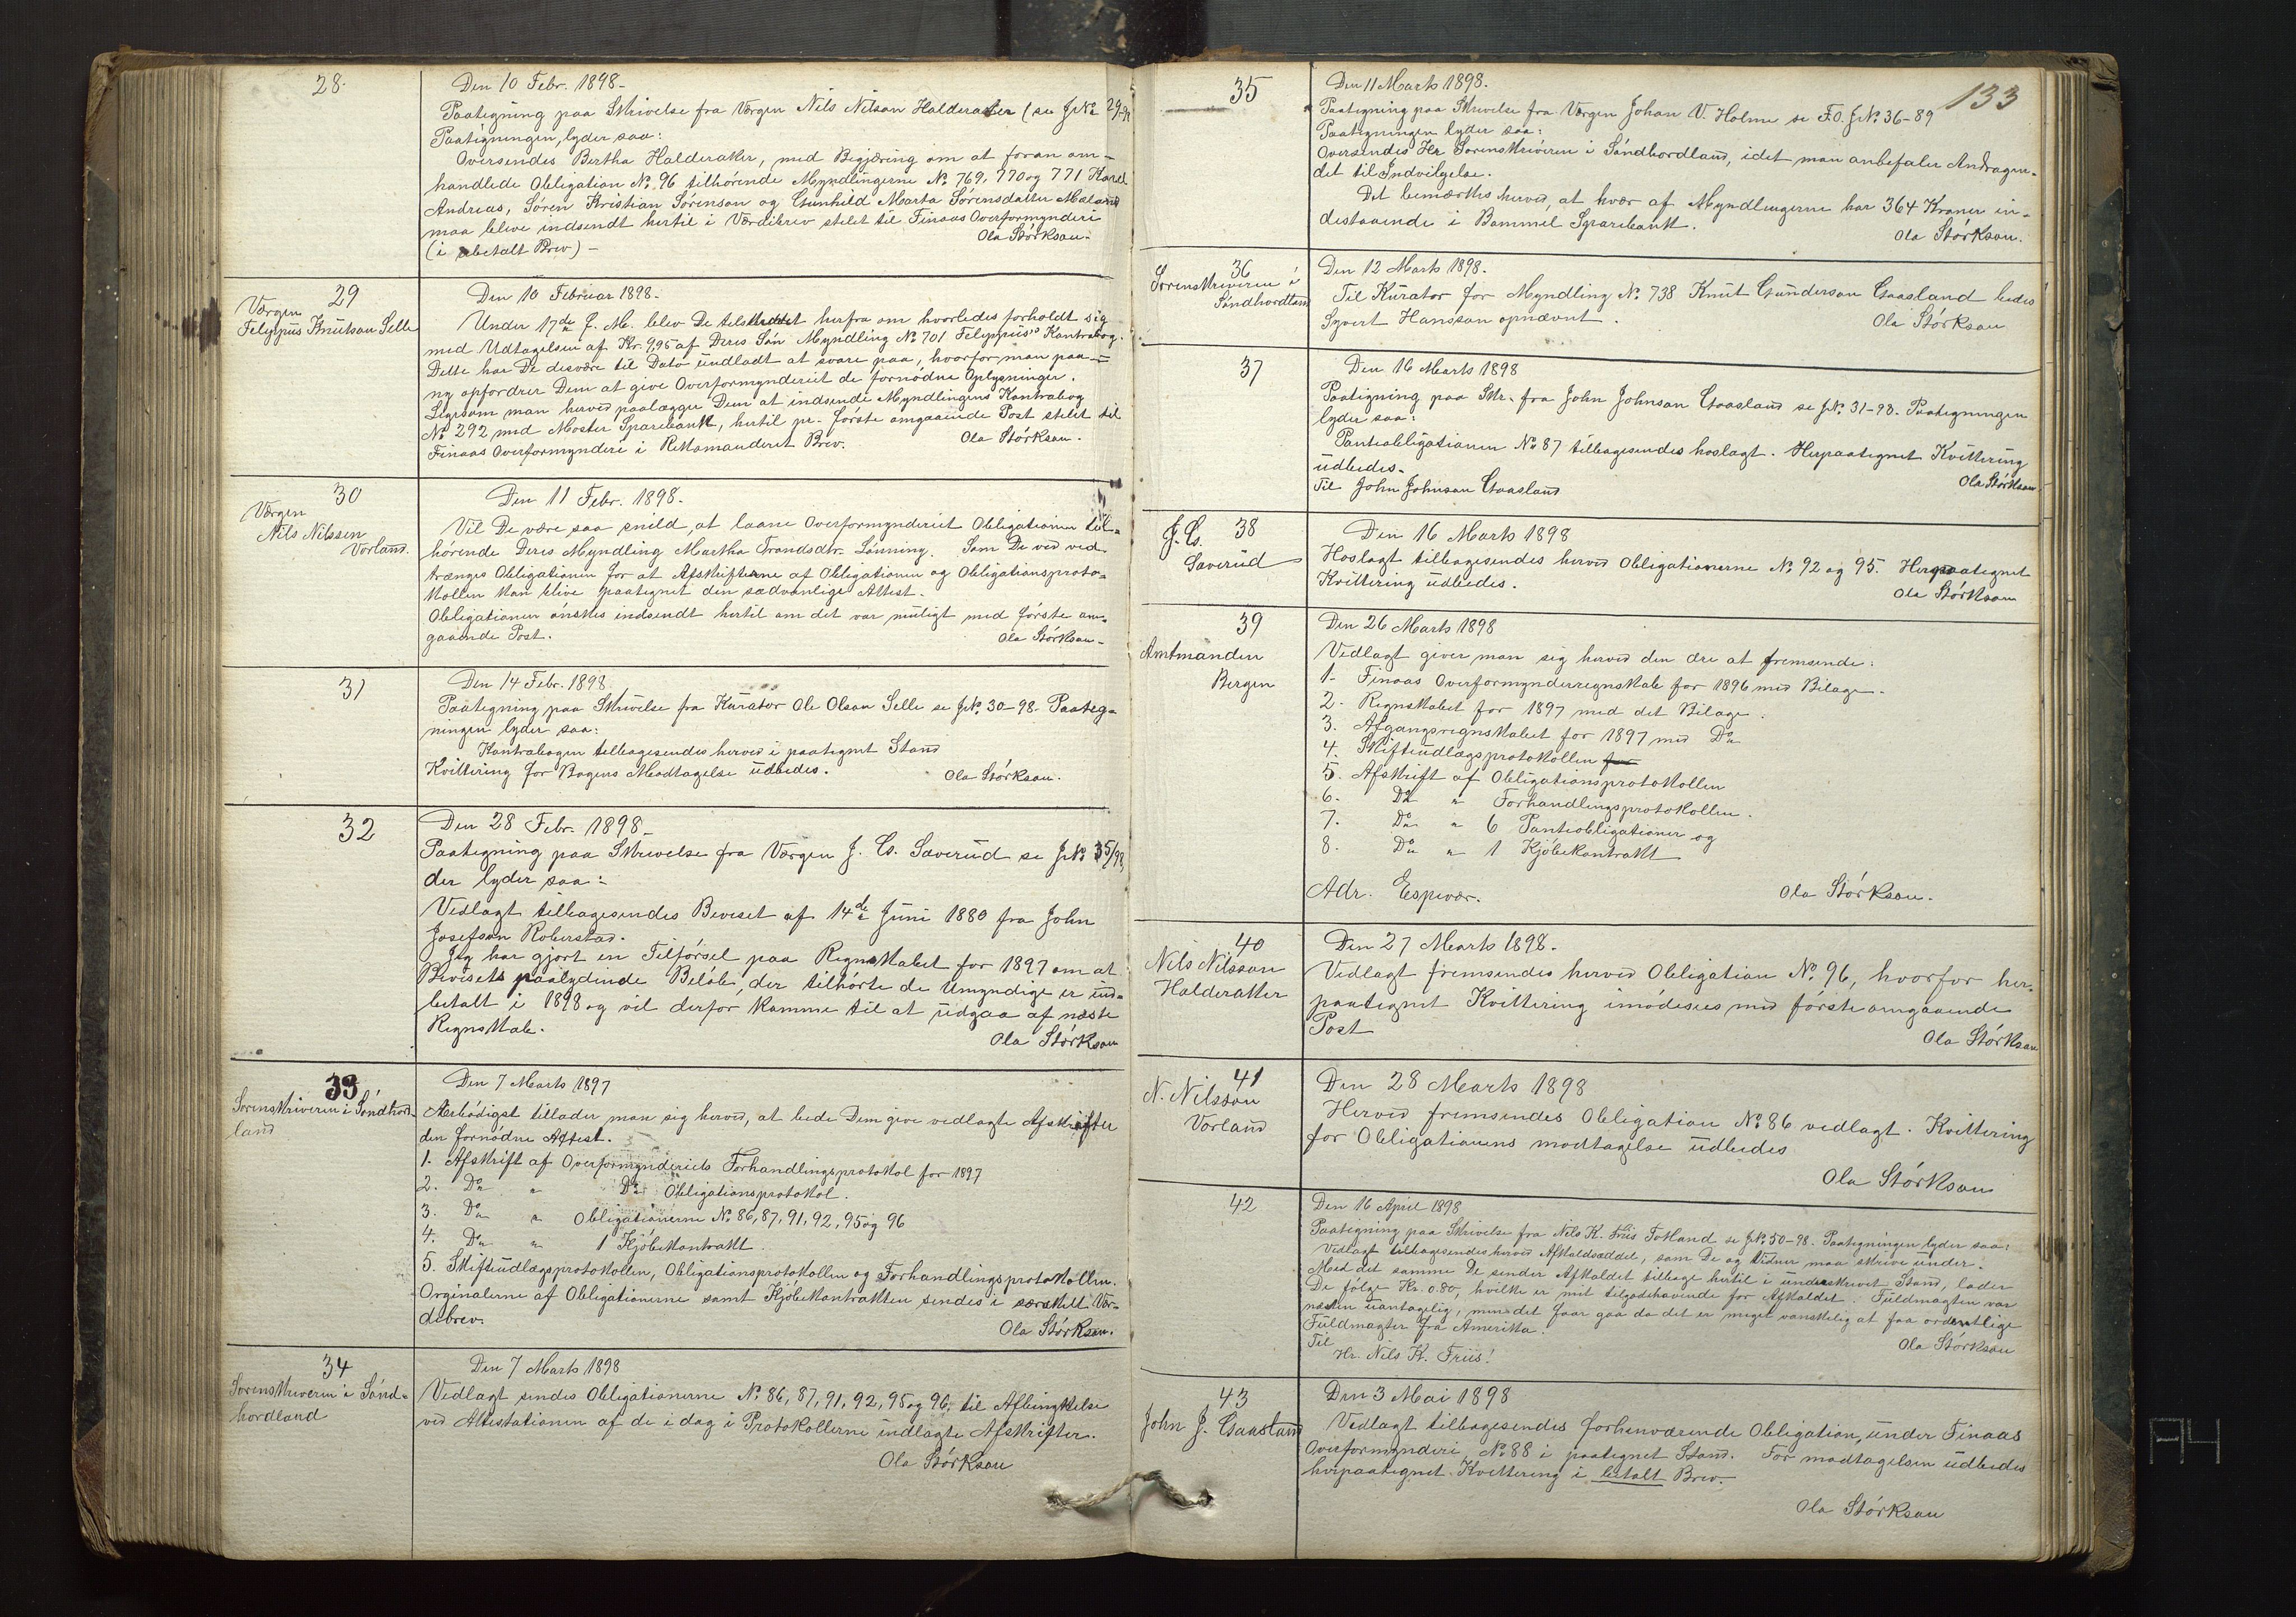 28.
Den 10 Febr. 1898.
Paategning paa Skrivelse fra Værgen Nils Nilson Halderaker (se JNo 29-98
Paategningen lyder saa:
Oversendes Bertha Halderaker, med Begjæring om at foran om-
handlede Obligation No 96 tilhörende Myndlingerne No 769, 770 og 771
Andreas, Sören Kristian Sörenson og Gunhild Marta Sörensdatter Maland
maa blive indsendt hertil i Værdibrev stilet til Finaas Overformynderi
(i ubetalt Brev) –
Ola Störkson.
29
Værgen
Felippüs Knütson Selle
Den 10 Februar 1898.
Under 17de f. M. blev De tilskrevet herfra om hvorledes forholdt sig
med Udtagelsen af Kr. 9,95 af Deres Sön Myndling No 701 Felippüs' Kontrabog.
Dette har De desvære til Dato ündladt at svare paa, hvorfor man paa-
ny opfordrer Dem at give Overformynderiet de fornödne Oplysninger.
Ligesom man herved paalægger Dem at indsende Myndlingens Kontrabog
No 292 med Moster Sparebank, hertil pr. förste omgaaende Post stilet til
Finaas Overformynderi i Rekomanderet Brev.
Ola Störkson.
30
Værgen
Nils Nilssen
Vorland.
Den 11 Febr. 1898.
Vil De være saa snild, at laane Overformynderiet Obligationen til-
hörende Deres Myndling Martha Trondsdtr. Lönning. Som De ved ved-
trænges Obligationen for at Afskrifterne af Obligationen og Obligationsproto-
kollen kan blive paategnet den sædvanlige Attest.
Obligationen önskes indsendt hertil om det var müligt med förste om-
gaaende Post.
Ola Störkson.
31
Den 14 Febr. 1898
Paategning paa Skrivelse fra Kürator Ole Olson Selle se JNo. 30-98. Paateg-
ningen lyder saa:
Kontrabogen tilbagesendes herved i paategnet Stand
Kvittering for Bogens Modtagelse üdbedes.
Ola Störkson.
32
Den 28 Febr. 1898.
Paategning paa Skrivelse fra Værgen J. Cs. Saverüd se JNo 35/98,
der lyder saa:
Vedlagt tilbagesendes Beviset af 14de Jüni 1880 fra John
Josefson Roberstad.
Jeg har gjort en Tilförsel paa Regnskabet for 1897 om at
Bevisets paalydende Belöb, der tilhörte de Umyndige er ind-
betalt i 1898 og vil derfor komme til at üdgaa af næste
Regnskab.
Ola Störkson
33
Sorenskriveren i Söndhord-
land
Den 7 Marts 1897
Ærbödigst tillader man sig herved, at bede Dem give vedlagte Afskrifter
den fornödne Attest.
1. Afskrift af Overformynderiets Forhandlingsprotokol for 1897
2. Do " Do Obligationsprotokol.
3. Do " Obligationerne No. 86, 87, 91, 92, 95 og 96
4. Do " 1 Kjöbekontrakt.
5. Skifteüdlægsprotokollen, Obligationsprotokollen og Forhandlingsprotokollen.
Orginalerne af Obligationerne samt Kjöbekontrakten sendes i særskilt Vær-
dibrev.
Ola Störkson.
34
Sorenskriveren i Sönd-
hordland
Den 7 Marts 1898
Vedlagt sendes Obligationerne No. 86, 87, 91, 92, 95 og 96, til Afbenyttelse
ved Attestationen af de i dag i Protokollerne indlagte Afskrifter.
Ola Störkson
133
35
Den 11 Marts 1898.
Paategning paa Skrivelse fra Værgen Johan V. Holme se F.O. JNo. 36-89
Paategningen lyder saa:
Oversendes Hr Sorenskriveren i Söndhordland, idet man anbefaler Andragen-
det til Indvilgelse.
Det bemærkes herved, at hver af Myndlingerne har 364 Kroner in-
destaaende i Bömmel Sparebank.
Ola Störkson.
36
Sorenskriveren i
Söndhordland
Den 12 Marts 1898.
Til Kürator for Myndling No. 738 Knüt Günderson Gaasland bedes
Syvert Hansson opnævnt.
Ola Störkson
37
Den 16 Marts 1898
Paategning paa Skr. fra John Johnson Gaasland se JNo. 31-98. Paategningen
lyder saa:
Panteobligationen No 87 tilbagesendes hoslagt. Herpaategnet Kvittering
üdbedes.
Til John Johnson Gaasland
Ola Störkson
38
J. Cs.
Saverüd
Den 16 Marts 1898
Hoslagt tilbagesendes herved Obligationerne No. 92 og 95. Herpaategnet
Kvittering üdbedes.
Ola Störkson
39
Amtmanden
Bergen
Den 26 Marts 1898
Vedlagt giver man sig herved den ære at fremsende:
1. Finaas Overformynderregnskab for 1896 med Bilage.
2. Regnskabet for 1897 med det Bilage.
3. Afgangsregnskabet for 1897 med Do
4. Skifteüdlægsprotokollen for
5. Afskrift af Obligationsprotokollen
6. Do " Forhandlingsprotokollen.
7. Do " 6 Panteobligationer og
8. Do " 1 Kjöbekontrakt
Adr. Espevær.
Ola Störkson.
40
Nils Nilsson
Halderaker
Den 27 Marts 1898.
Vedlagt fremsendes herved Obligation No. 96, hvorfor her-
paategnet Kvittering imödesees med förste omgaaende
Post
Ola Störkson
41
N. Nilsson
Vorland
Den 28 Marts 1898
Herved fremsendes Obligation No. 86 vedlagt. Kvittering
for Obligationens modtagelse üdbedes
Ola Störkson
42
Den 16 April 1898
Paategning paa Skrivelse fra Nils K. Friis Totland se JNo. 50-98. Paategningen lyder saa:
Vedlagt tilbagesendes herved Afkaldsseddel, som De og Vidner maa skrive under.
Med det samme De sender Afkaldet tilbage hertil i ünderskrevet Stand, lader
De fölge Kr. 0.80, hvilke er mit tilgodehavende for Afkaldet. Füldmagten var
næsten üantagelig, men det faar gaa da det er meget vanskelig at faa ordentlige
Füldmagter fra Amerika.
Til
Hr. Nils K. Friis!
Ola Störkson
43
John J. Gaasland
Den 3 Mai 1898
Vedlagt tilbagesendes forhenværende Obligation, ünder Finaas
Overformynderi, No. 88 i paategnet Stand. For modtagelsen üdbedes
herpaategnet Kvittering i betalt Brev.
Ola Störkson